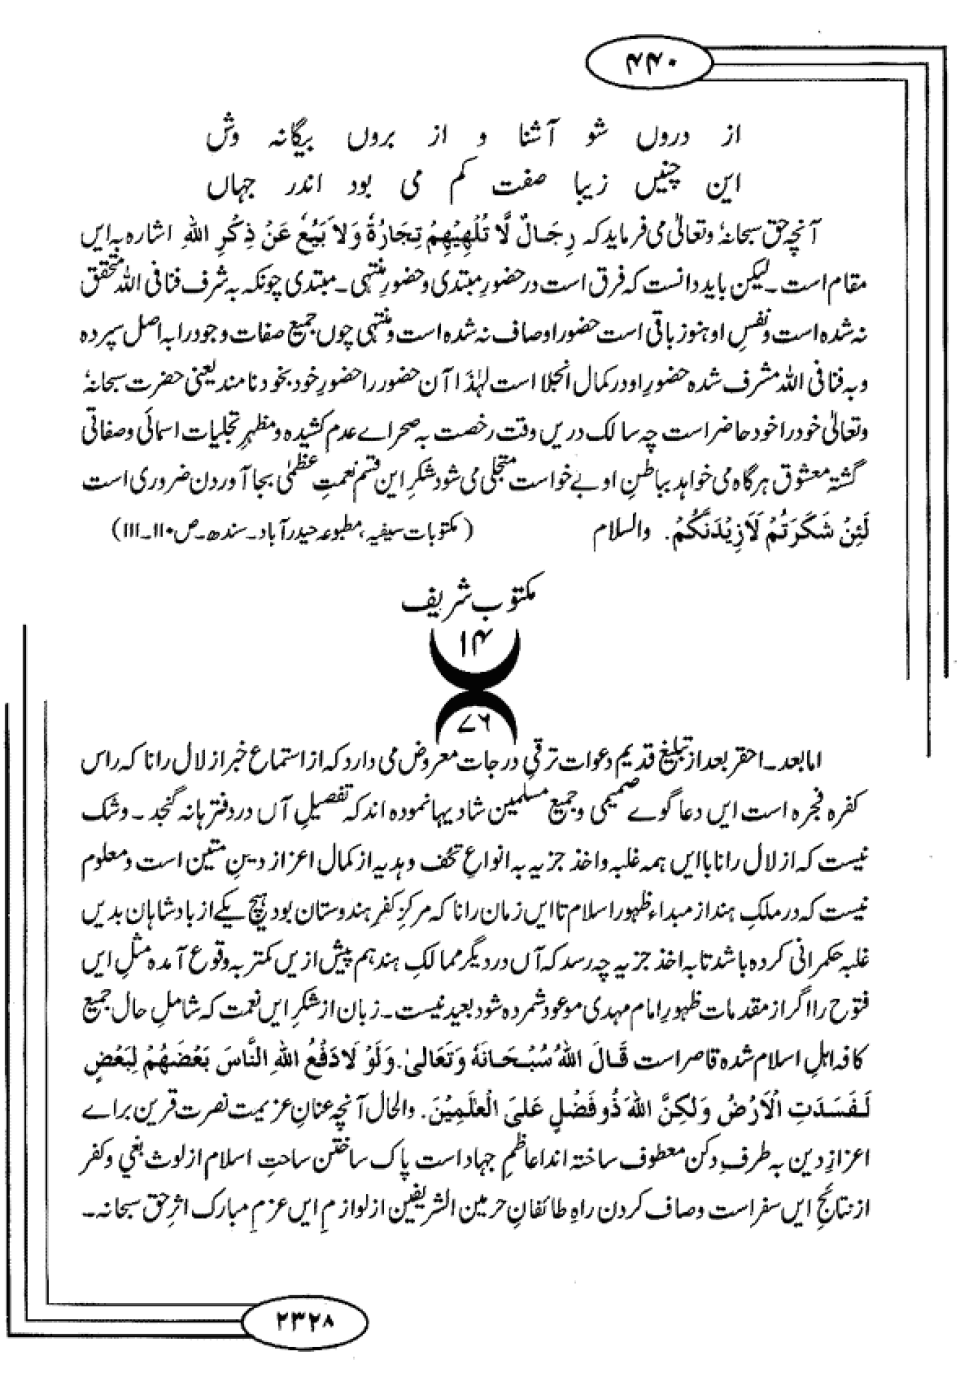 ۴۴۰
از دروں شو آشنا و از بروں بیگانہ وش
این چنیں زیبا صفت کم می بود اندر جہاں
آنچہ حق سبحانہٗ وتعالیٰ می فرماید کہ رِجَالٌ لَّا تُلْهِيْهِمْ تِجَارَةٌ وَلَا بَيْعٌ عَنْ ذِكْرِ اللهِ اشارہ بہ ایں
مقام است ۔ لیکن باید دانست کہ فرق است در حضورِ مبتدی و حضورِ منتہی ۔ مبتدی چونکہ بہ شرف فنا فی اللہ متحقق
نہ شدہ است و نفسِ او ہنوز باقی است حضور اوصاف نہ شدہ است و منتہی چوں جمیع صفات وجود را بہ اصل سپردہ
و بہ فنا فی اللہ مشرف شدہ حضورِ او در کمال انجلا است لہٰذا آن حضور را حضورِ خود بخود نامند یعنی حضرت سبحانہٗ
وتعالیٰ خود را خود حاضر است چہ سالک دریں وقت رخصت بہ صحراے عدم کشیدہ و مظہرِ تجلیات اسمائی و صفاتی
گشتہ معشوق ہر گاہ می خواہد بباطنِ او بے خواست متجلی می شود شکرِ ایں قسم نعمتِ عظمیٰ بجا آوردن ضروری است
لَئِنْ شَكَرْتُمْ لَاَزِيْدَنَّكُمْ. والسلام (مکتوبات سیفیہ، مطبوعہ حیدرآباد۔ سندھ۔ ص ۱۱۰۔۱۱۱)
مکتوب شریف
۱۴
۷۶
اما بعد۔ احقر بعد از تبلیغِ قدیم دعوات ترقیِ درجات معروض می دارد کہ از استماع خبر ازلال رانا کہ راس
کفرہ فجرہ است ایں دعا گوے صمیمی و جمیع مسلمین شادیہا نمودہ اند کہ تفصیلِ آں در دفتر ہا نہ گنجد ۔ وشک
نیست کہ ازلال رانا با ایں ہمہ غلبہ و اخذ جزیہ بہ انواعِ تحف و ہدیہ از کمال اعزاز دینِ متین است و معلوم
نیست کہ در ملکِ ہند از مبداء ظہور اسلام تا ایں زمان رانا کہ مرکزِ کفرِ ہندوستان بود ہیچ یکے از بادشاہان بدیں
غلبہ حکمرانی کردہ باشد تا بہ اخذ جزیہ چہ رسد کہ آں در دیگر ممالکِ ہند ہم پیش ازیں کمتر بہ وقوع آمدہ مثلِ ایں
فتوح را اگر از مقدمات ظہورِ امام مہدی موعود شمردہ شود بعید نیست ۔ زبان از شکرِ ایں نعمت کہ شاملِ حال جمیع
کافہ اہلِ اسلام شدہ قاصر است قَالَ اللهُ سُبْحَانَهٗ وَتَعَالٰى. وَلَوْ لَادَفْعُ اللهِ النَّاسَ بَعْضَهُمْ لِبَعْضٍ
لَفَسَدَتِ الْاَرْضُ وَلٰكِنَّ اللهَ ذُوفَضْلٍ عَلَى الْعٰلَمِيْنَ. والحال آنچہ عنانِ عزیمت نصرت قرین براے
اعزازِ دین بہ طرفِ دکن معطوف ساختہ اند اعاظمِ جہاد است پاک ساختن ساحتِ اسلام از لوث بغی و کفر
از نتائجِ ایں سفر است و صاف کردن راہِ طائفانِ حرمین الشریفین از لوازمِ ایں عزمِ مبارک اثرِ حق سبحانہ ۔
۲۳۲۸